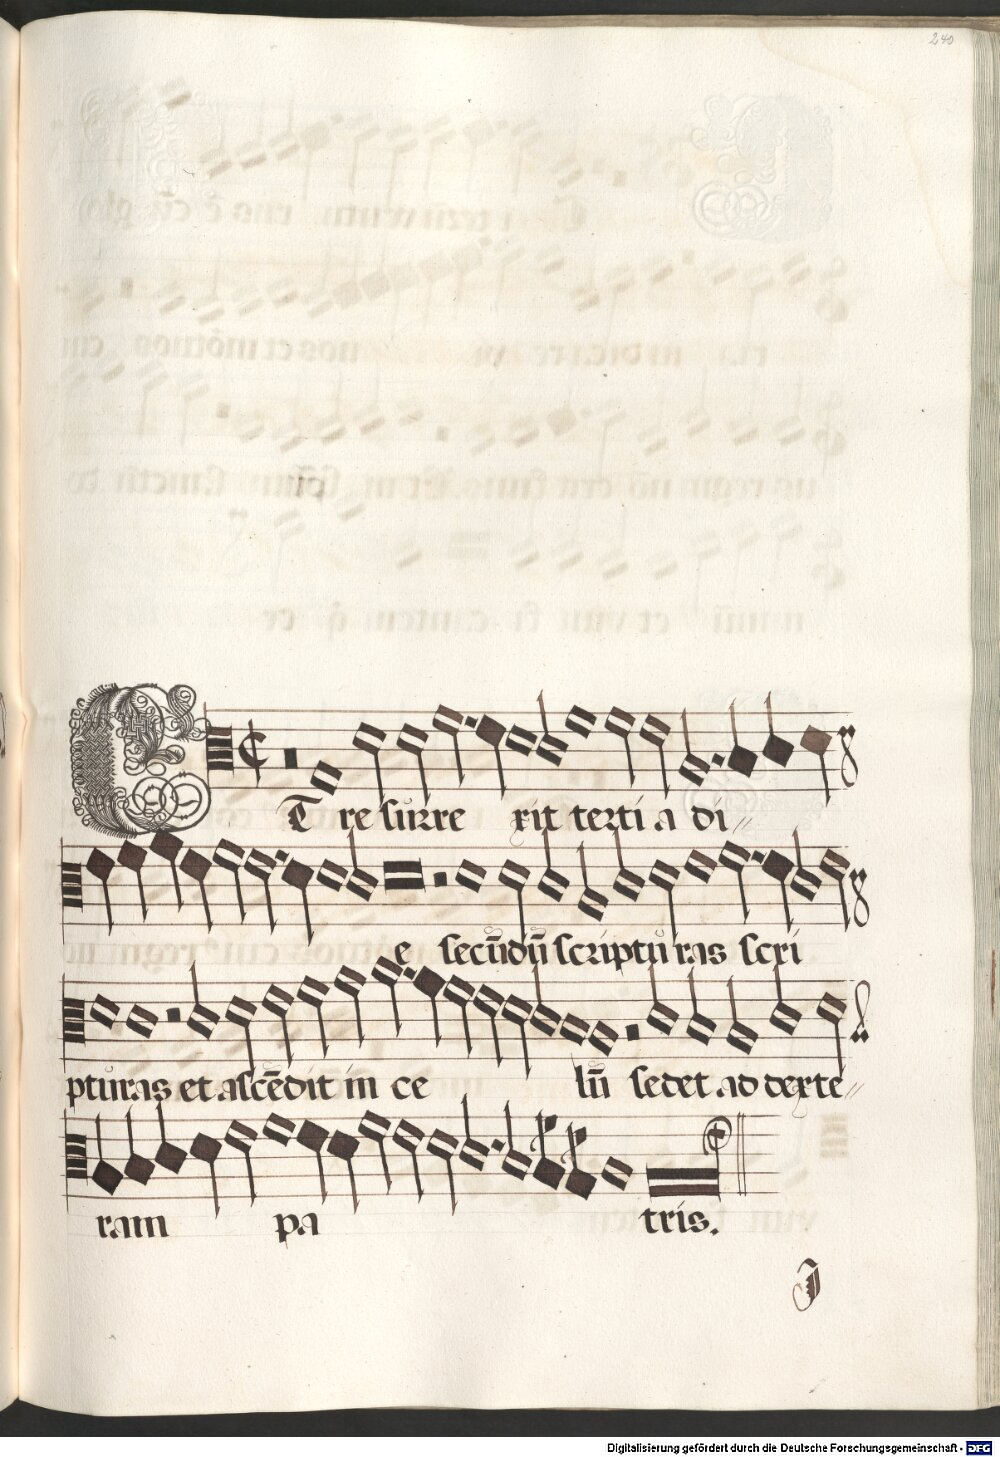 240
ET resurre xit terti a di
e secūdū scriptu ras scri
pturas et ascēdit in ce lū sedet ad dexte
ram pa tris.
J
Digitalisierung gefördert durch die Deutsche Forschungsgemeinschaft - DFG